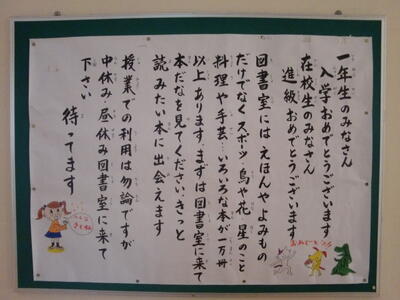 一年生のみなさん
入学おめでとうございます
在校生のみなさん
進級おめでとうございます
図書室には えほんやよみもの
だけでなく スポーツ、鳥や花 星のこと
料理や手芸…いろいろな本が一万冊
以上あります。まずは図書室に来て
本だなを見てください。きっと
読みたい本に出会えます
授業での利用は勿論ですが
中休み・昼休み図書室に来て
下さい
待ってます
おめでとう